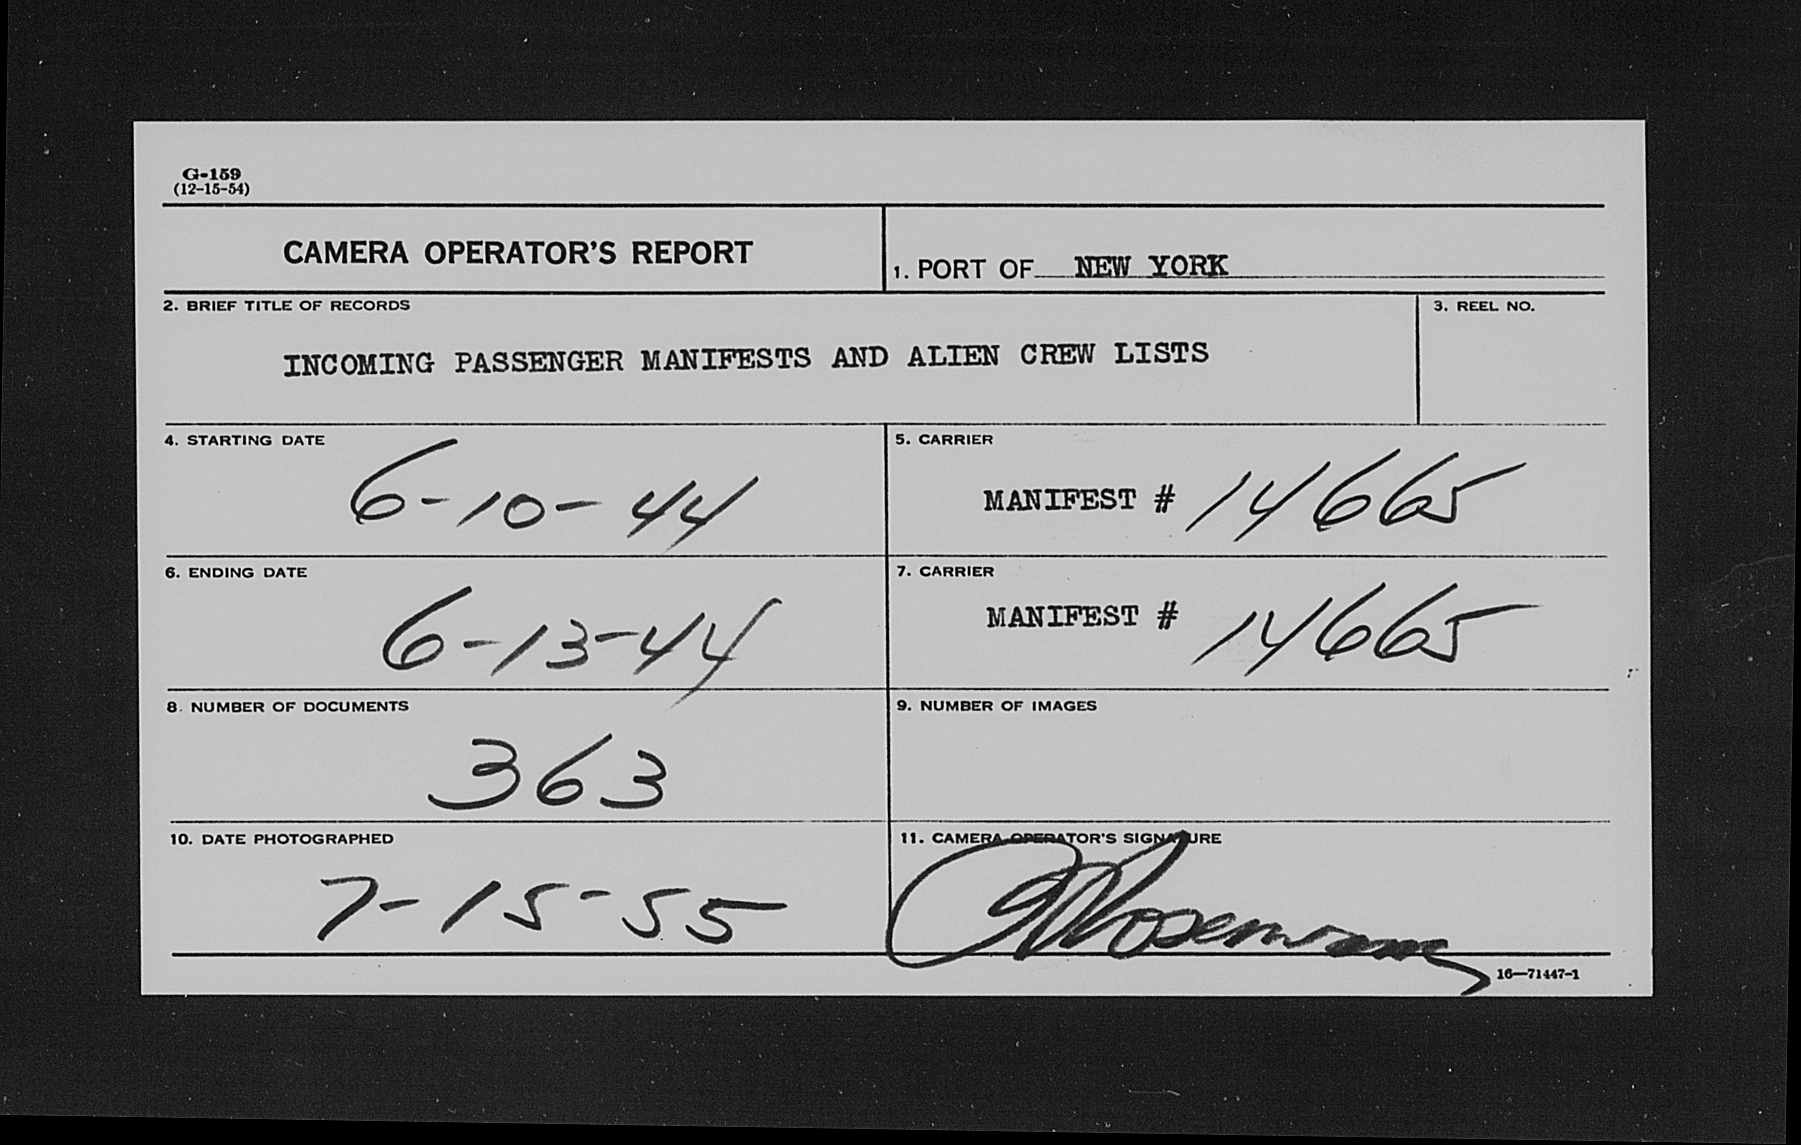 G-159
(12-15-54)
CAMERA OPERATOR'S REPORT
1. PORT OF NEW YORK
2. BRIEF TITLE OF RECORDS
3. REEL NO.
INCOMING PASSENGER MANIFESTS AND ALIEN CREW LISTS
4. STARTING DATE
6-10-44
5. CARRIER
MANIFEST # 14665
6. ENDING DATE
6-13-44
7. CARRIER
MANIFEST # 14665
8. NUMBER OF DOCUMENTS
363
9. NUMBER OF IMAGES
10. DATE PHOTOGRAPHED
7-15-55
11. CAMERA OPERATOR'S SIGNATURE
16—71447-1